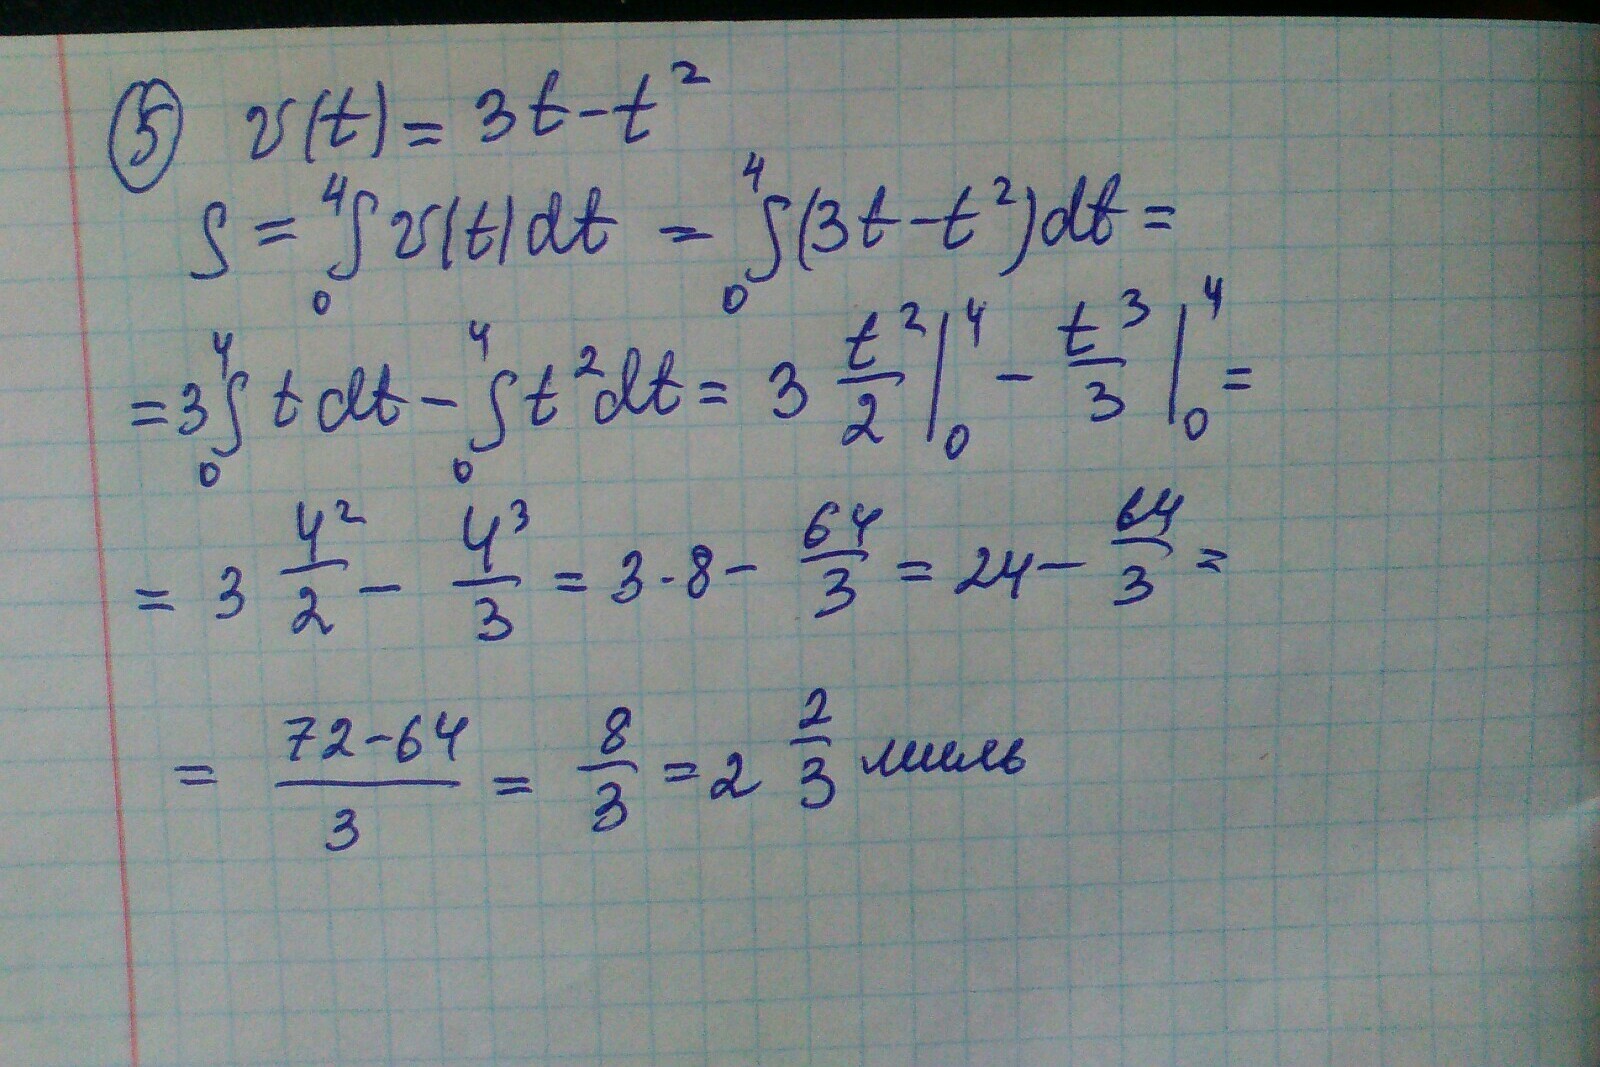 ⑤ v(t) = 3t - t²
S = ⁴∫₀ v(t)dt = ⁴∫₀ (3t - t²)dt =
= 3 ⁴∫₀ t dt - ⁴∫₀ t² dt = 3 t²/2 |⁴₀ - t³/3 |⁴₀ =
= 3 4²/2 - 4³/3 = 3·8 - 64/3 = 24 - 64/3 =
= 72-64/3 = 8/3 = 2 2/3 миль